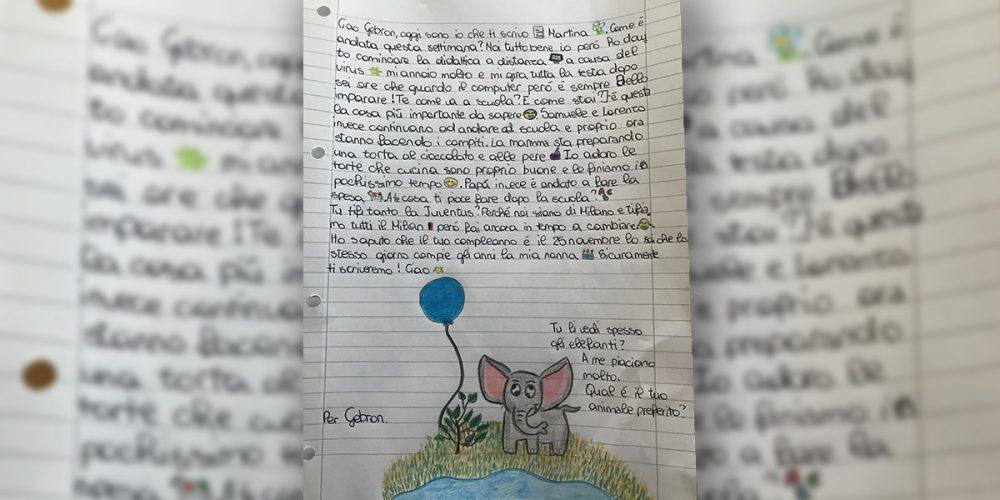 Ciao Gebron, oggi sono io che ti scrivo Martina. Come è
andata questa settimana? Noi tutto bene io però ho dovu
to cominciare la didattica a distanza a causa del
virus mi annoio molto e mi gira tutta la testa dopo
sei ore che guardo il computer però è sempre Bello
imparare! Te come va a scuola? E come stai? È questa
la cosa più importante da sapere Samuele e Lorenzo
invece continuano ad andare a scuola e proprio ora
stanno facendo i compiti. La mamma sta preparando
una torta al cioccolato e alle pere Io adoro le
torte che cucina sono proprio buone e le finiamo in
pochissimo tempo. Papá invece è andato a fare la
spesa. A te cosa ti piace fare dopo la scuola?
Tu tifi tanto la Juventus? Perché noi siamo di Milano e tifia
mo tutti il Milan però fai ancora in tempo a cambiare
Ho saputo che il tuo compleanno é il 26 novembre lo sai che lo
stesso giorno compie gli anni la mia nonna Sicuramente
ti scriveremo! Ciao
Tu li vedi spesso
gli elefanti?
A me piaciono
molto.
Qual é il tuo
animale preferito?
Per Gebron.